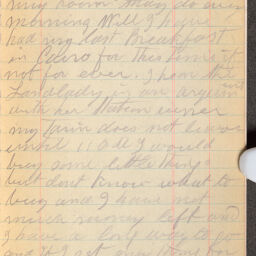 my room they do even
morning Will I have
had my last Breakfast
in Cairo for this time if
not for ever. I hear the
Landlady is an argument
with her Station runner
my train does not leave
until 11 Oll I would
buy some little things
but dont know what to
buy and I have not
much money left and
I have a long way to go
and if I get any time for